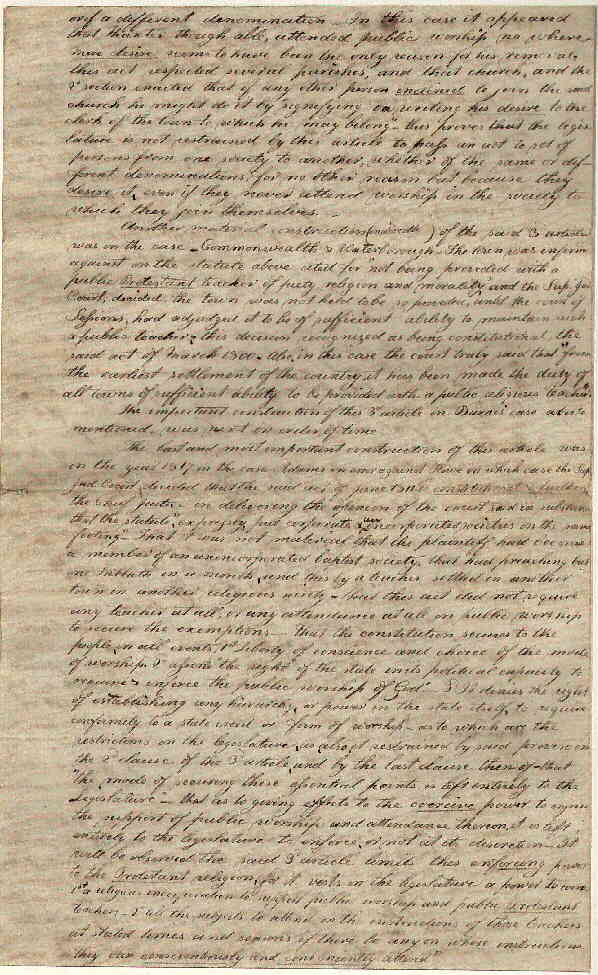 of a different denomination — In this case it appeared
that theater though able, attended public worship no where —
mere desire seems to have been the only reason for his removal
this act respected several parishes, and that church, and the
2d section enacted that if any other person enclined to join the said
church he might do it by signifying in writing his desire to the
clerk of the town to which he may belong" — this proves that the legis-
lature is not restrained by this article to pass an act to set off
persons from one society to another, whether of the same or dif-
ferent denominations, for no other reason but because they
desire it, even if they never attend worship in the society to
which they join themselves. —
Another material construction of the said 3 article
was in the case — Commonwealth v Waterborough — The town was inform
against on the statute above cited for not being provided with a
public Protestant teacher of piety religion and morality, and the Sup. Jud
Court, decided, the town was not held to be so provided, until the court of
Sessions, had adjudged it to be of sufficient ability to maintain such
a public teacher; this decision recognized as being constitutional the
said act of March 1800 — also, in this case the court truly said that "from
the earliest settlement of the country, it has been made the duty of
all towns of sufficient ability to be provided with a public religious teacher."
The important construction of this 3 article in Barnes' case above
mentioned, was next in order of time
The last and most important construction of this article was
in the year 1817, in the case Adams against Howe in which case the Sup
Jud Court decided that the said act of June 1811 constitutional
the chief justice in delivering the opinion of the court said in substance
that the statute, expressly put corporate & unincorporated societies on the same
footing — That it was not material that the plaintiff had become
a member of an unincorporated baptist society, that had preaching but
one Sabbath in a month, and this by a teacher settled in another
town in another religious society — that this act did not require
any teacher at all, or any attendance at all on public worship
to secure the exemptions — that the constitution secures to the
people in all events, 1st liberty of conscience and choice of the mode
of worship. 2d affirms the right of the state in its political capacity to
require & enforce the public worship of God. & 3d denies the right
of establishing any hierarchy, or power in the state itself, to require
conformity to a state creed or form of worship — as to which are the
restrictions on the legislature, as also it restrained by said proviso in
the 2d clause of the 3d article, and by the last clause thereof — that
"the mode of securing these essential points is left entirely to the
Legislature" — that as to giving effects to the coercive power to enjoin
the support of public worship and attendance thereon, it is left
entirely to the legislature to enforce, or not at its discretion — It
will be observed the said 3d article limits this enforcing power
to the Protestant religion, for it vests in the legislature a power to cause
1st religious incorporations to support public worship and public protestant
teachers — 2 all the subjects to attend on the instructions of those teachers
at stated times and seasons if there be any on whose instructions
they can conscientiously and conveniently attend"